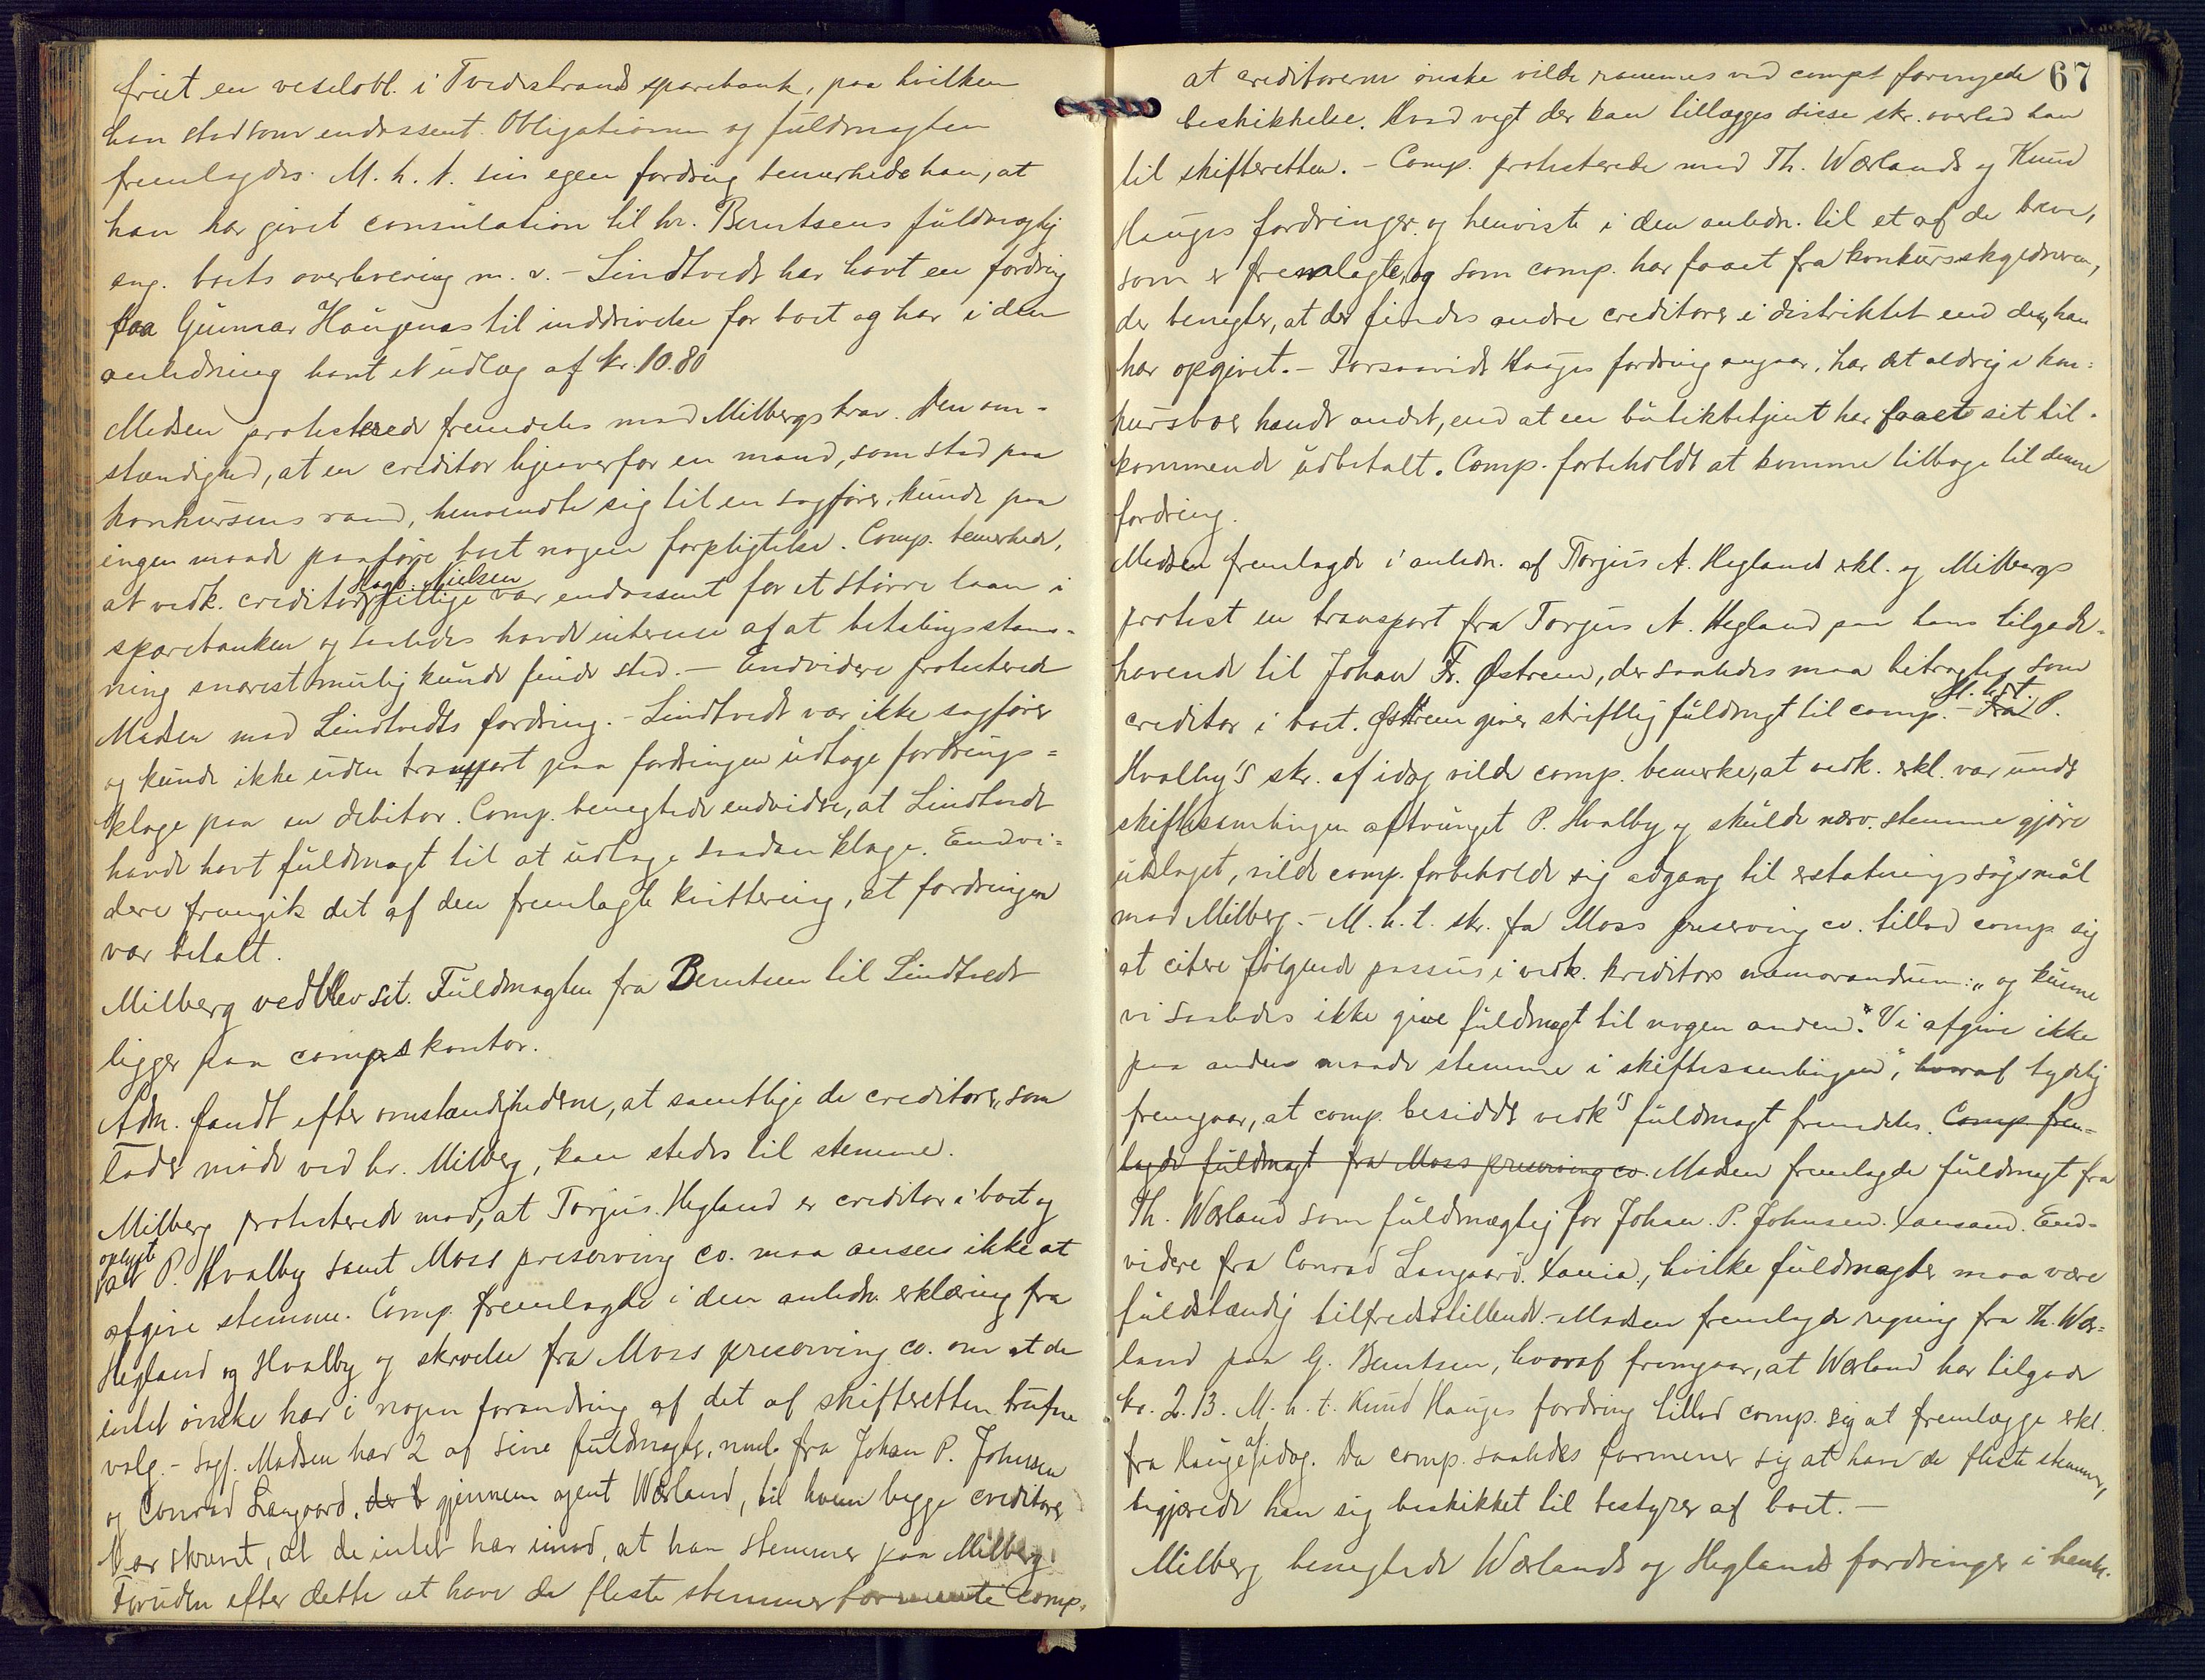 friet en vexelobl. i Tvedestrands sparebank, paa hvilken
han stod som endossent. Obligationen og fuldmagten
fremlagdes. M. h. t. sin egen fordring bemerkede han, at
han har givet consulation til hr. Berntsens fuldmægtig
ang. boets overlevering m. v. – Lindtvedt har havt en fordring
paa Gunnar Haugenes til inddrivelse for boet og har i den
anledning havt et udlæg af kr. 10.80
Madsen protesterede fremdeles mod Milbergs krav. Den om-
stændighed, at en creditor ligeoverfor en mand, som stod paa
konkursens rand, henvendte sig til en sagfører, kunde paa
ingen maade paaføre boet nogen forpligtelse. Comp. bemerkede,
at vedk. creditor Aage Nielsen var endossent for et større laan i
sparebanken og saaledes havde interesse af at betalingsstans-
ning snarest mulig kunde finde sted. – Endvidere protesterede
Madsen mod Lindtvedts fordring. – Lindtvedt var ikke sagfører
og kunde ikke uden transport paa fordringen udtage fordrings-
klage paa en debitor. Comp. benegtede endvidere, at Lindtvedt
havde havt fuldmagt til at udtage saadan klage. Endvi-
dere fremgik det af den fremlagte kvittering, at fordringen
var betalt.
Milberg vedblev sit. Fuldmagten fra Berntsen til Lindtvedt
ligger paa comps kontor.
Adm. fandt efter omstændighederne, at samtlige de creditorer, som
lader møde ved hr. Milberg, kan stedes til stemme.
Milberg protesterede mod, at Torjus Hegland er creditor i boet og
oplyst
at P. Hvalby samt Moss preserving co. maa ansees ikke at
afgive stemme. Comp. fremlagde i den anledn. erklæring fra
Hegland og Hvalby og skrivelse fra Moss preserving co. om at de
intet ønske har i nogen forandring af det af skifteretten trufne
valg. – Sagf. Madsen har 2 af sine fuldmagter, nml. fra Johan P. Johnsen
og Conrad Langaard, der gjennem agent Wærland, til hvem begge creditorer
har skrevet, at de intet har imod, at han stemmer paa Milberg.
Foruden efter dette at have de fleste stemmer formente comp.
67
at creditorernes ønske vilde rammes ved comps fornyede
beskikkelse. Hvad vegt der kan tillægges disse skr. overlod han
til skifteretten. – Comp. protesterede mod Th. Wærlands og Knud
Hauges fordringer og henviste i den anledn. til et af de breve,
som er fremlagte, og som comp. har faaet fra konkursskyldneren,
der benegter, at der findes andre creditorer i distriktet end dem, han
har opgivet. – Forsaavidt Hauges fordring angaar, har det aldrig i kon-
kursboer hændt andet, end at en butikbetjent har faaet sit til-
kommende udbetalt. Comp. forbeholdt at komme tilbage til denne
fordring.
Madsen fremlagde i anledn. af Torjus A. Hegland erkl. og Milbergs
protest en transport fra Torjus A. Hegland paa hans tilgode-
havende til Johan Fr. Østrem, der saaledes maa betragtes som
creditor i boet. Østrem giver skriftlig fuldmagt til comp. – M. h. t. P.
Hvalby's skr. af idag vilde comp. bemerke, at vedk. erkl. var under
skiftesamlingen aftvunget P. Hvalby og skulde nærv. stemme gjøre
udslaget, vilde comp. forbeholde sig adgang til erstatningssøgsmål
mod Milberg. – M. h. t. skr. fra Moss preserving co. tillod comp. sig
at citere følgende passus i vedk. kreditors memorandum: „og kunne
vi saaledes ikke give fuldmagt til nogen anden". „Vi afgive ikke
paa anden maade stemme i skiftesamlingen", hvoraf tydelig
fremgaar, at comp. besidder vedk's fuldmagt fremdeles. Comp. frem-
lagde fuldmagt fra Moss preserving co. Madsen fremlagde fuldmagt fra
Th. Wærland som fuldmægtig for Johan P. Johnsen. Xansand. End-
videre fra Conrad Langaard. Xania., hvilke fuldmagter maa være
fuldstændig tilfredsstillende. – Madsen fremlagde regning fra Th. Wær-
land paa G. Berntsen, hvoraf fremgaar, at Wærland har tilgode
kr. 2.13. M. h. t. Knud Hauges fordring tillod comp. sig at fremlægge erkl.
fra Hauge af idag. Da comp. saaledes formener sig at have de fleste stemmer,
begjærede han sig beskikket til bestyrer af boet. –
Milberg benegtede Wærlands og Heglands fordringer i henh.